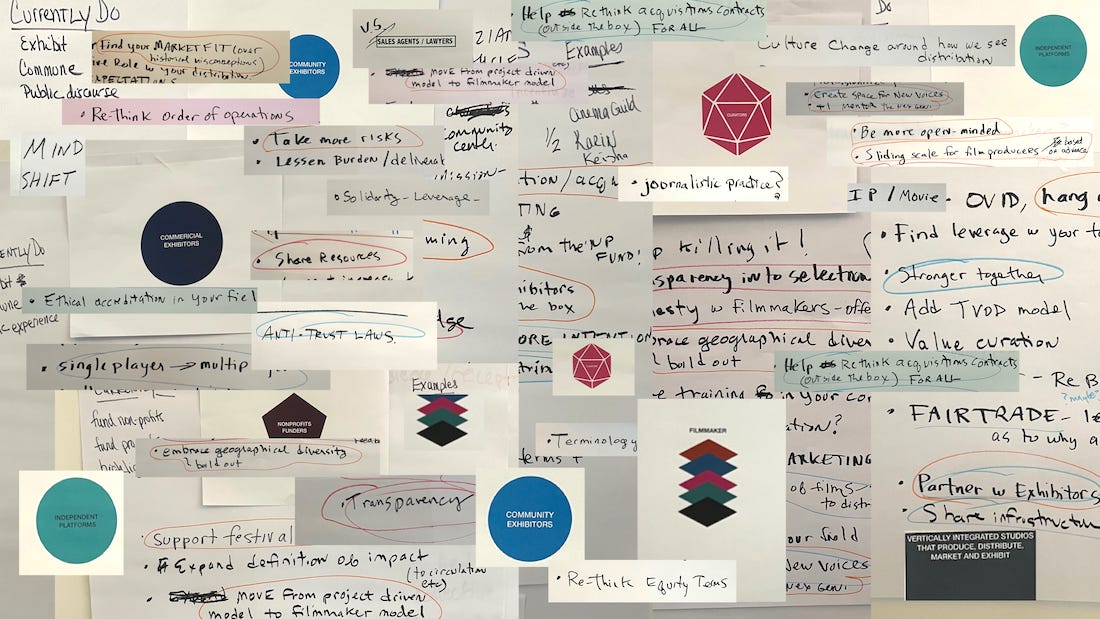 Currently Do
Exhibit
Commune
Public discourse
Find your MARKET FIT (over
historical misconceptions
ve Role w your distribution
COMMUNITY
EXHIBITORS
V.S.
SALES AGENTS / LAWYERS
MOVE From project driven
model to filmmaker model
• Help Re think acquisitions contracts
(outside the box) FOR ALL
Examples
Cinema Guild
1/2 Karin
Keisha
Culture Change around how we see
distribution
Do
INDEPENDENT
PLATFORMS
• Create space for New Voices
• +1 Mentor the next Gen!
• Re-Think order of operations
MIND
SHIFT
• Take more risks
• Lessen Burden/deliverat
community
center.
mission-
CURATORS
• Be more open-minded
• Sliding scale for film producers
Be based
on advance
• Solidarity - Leverage -
tion / acqu
• journalistic practice?
IP / Movie - OVID, hang
• Find leverage w your t
COMMERICIAL
EXHIBITORS
TING
$
from the NP
FUND!
ming
• Share Resources
p killing it!
sparency into selection
• Stronger together
ently Do
ibit $
c experience
• Ethical accreditation in your fiel
ANTI-TRUST LAWS.
dge
hibitors
he box
esty w filmmakers - offe
• Add TVOD model
• Value curation
• single player → multip
ORE INTENTION
brace geographical diver
bold out
• Help Rethink acquisitions contracts
(outside the box) FOR ALL
Re B
(maybe)
Examples
fund non-profits
fund pro
NONPROFITS
FUNDERS
• Embrace geographical diversity
bold out
• Terminology
terms +
e training in your cor
ation?
FILMMAKER
• FAIRTRADE -
as to why a
ARKETING
of films
to distr
your field
New Voices
Next Gen!
• Partner w Exhibitors
• Share infrastructure
INDEPENDENT
PLATFORMS
• Transparency
COMMUNITY
EXHIBITORS
Support festival
• Expand definition of impact
(to circulation
etc)
• MOVE From project driven
model to filmmaker model
• Re-Think Equity Terms
VERTICALLY INTEGRATED STUDIOS
THAT PRODUCE, DISTRIBUTE,
MARKET AND EXHIBIT